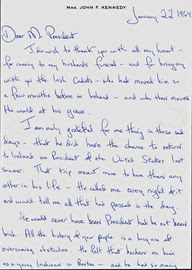 Mrs. John F. Kennedy
January 22 1964
Dear Mr. President
I do wish to thank you with all my heart -
for coming to my husband's funeral - and for bringing
with you the Irish Cadets - who had moved him so
a few months before in Ireland - and who then moved
the world at his grave.
I am only grateful for one thing in these sad
days - that he did have the chance to return
to Ireland as President of the United States last
summer. That trip meant more to him than any
other in his life - He called me every night of it
and would tell me all that had passed in the day.
He would never have been President had he not been
Irish. All the history of your people is a long one of
overcoming obstacles. He felt that burden on him
as a young Irishman in Boston - and he had so many